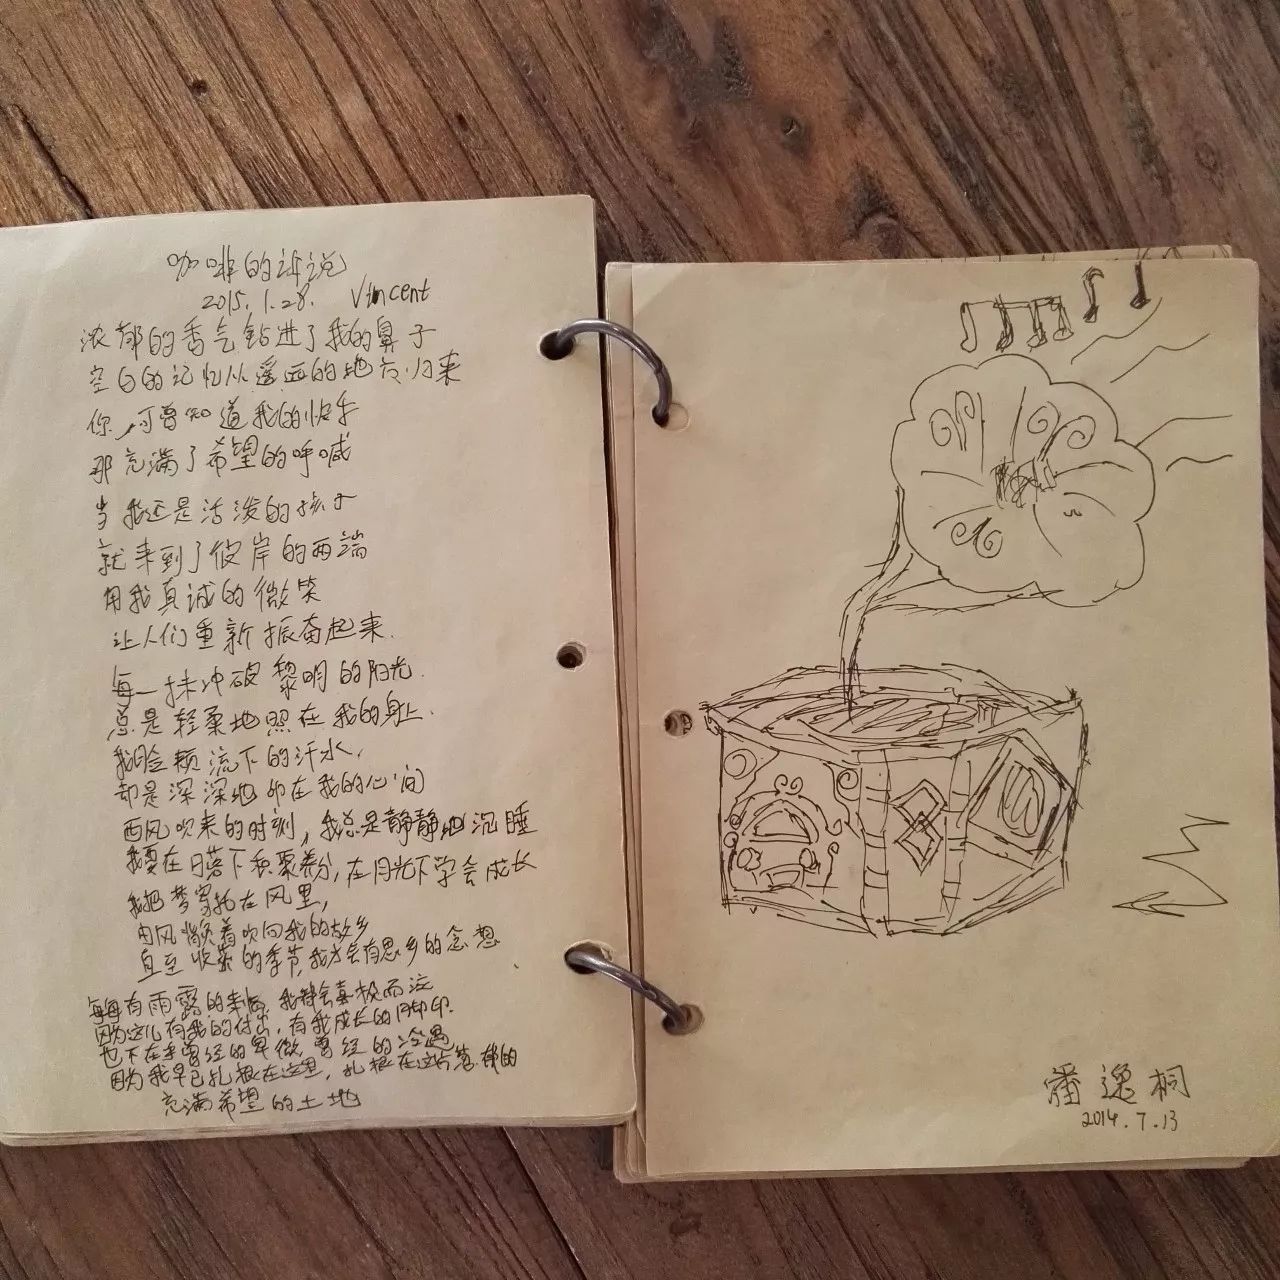 咖啡的诉说
2015.1.28. Vincent
浓郁的香气钻进了我的鼻子
空白的记忆从遥远的地方归来
你可曾知道我的快乐
那充满了希望的呼喊
当我还是活泼的孩子
就来到了彼岸的两端
用我真诚的微笑
让人们重新振奋起来.
每一抹冲破黎明的阳光.
总是轻柔地照在我的身上.
我脸颊流下的汗水,
却是深深地印在我的心间
西风吹来的时刻,我总是静静地沉睡
我要在日落下积聚养分,在月光下学会成长
我把梦寄托在风里,
由风飘着吹向我的故乡
直至收获的季节,我才会有思乡的念想、
每每有雨露的来临,我都会喜极而泣
因为这儿有我的付出,有我成长的脚印.
也不在乎曾经的卑微,曾经的冷遇
因为我早已扎根在这里,扎根在这片
充满希望的土地
潘逸桐
2014.7.13